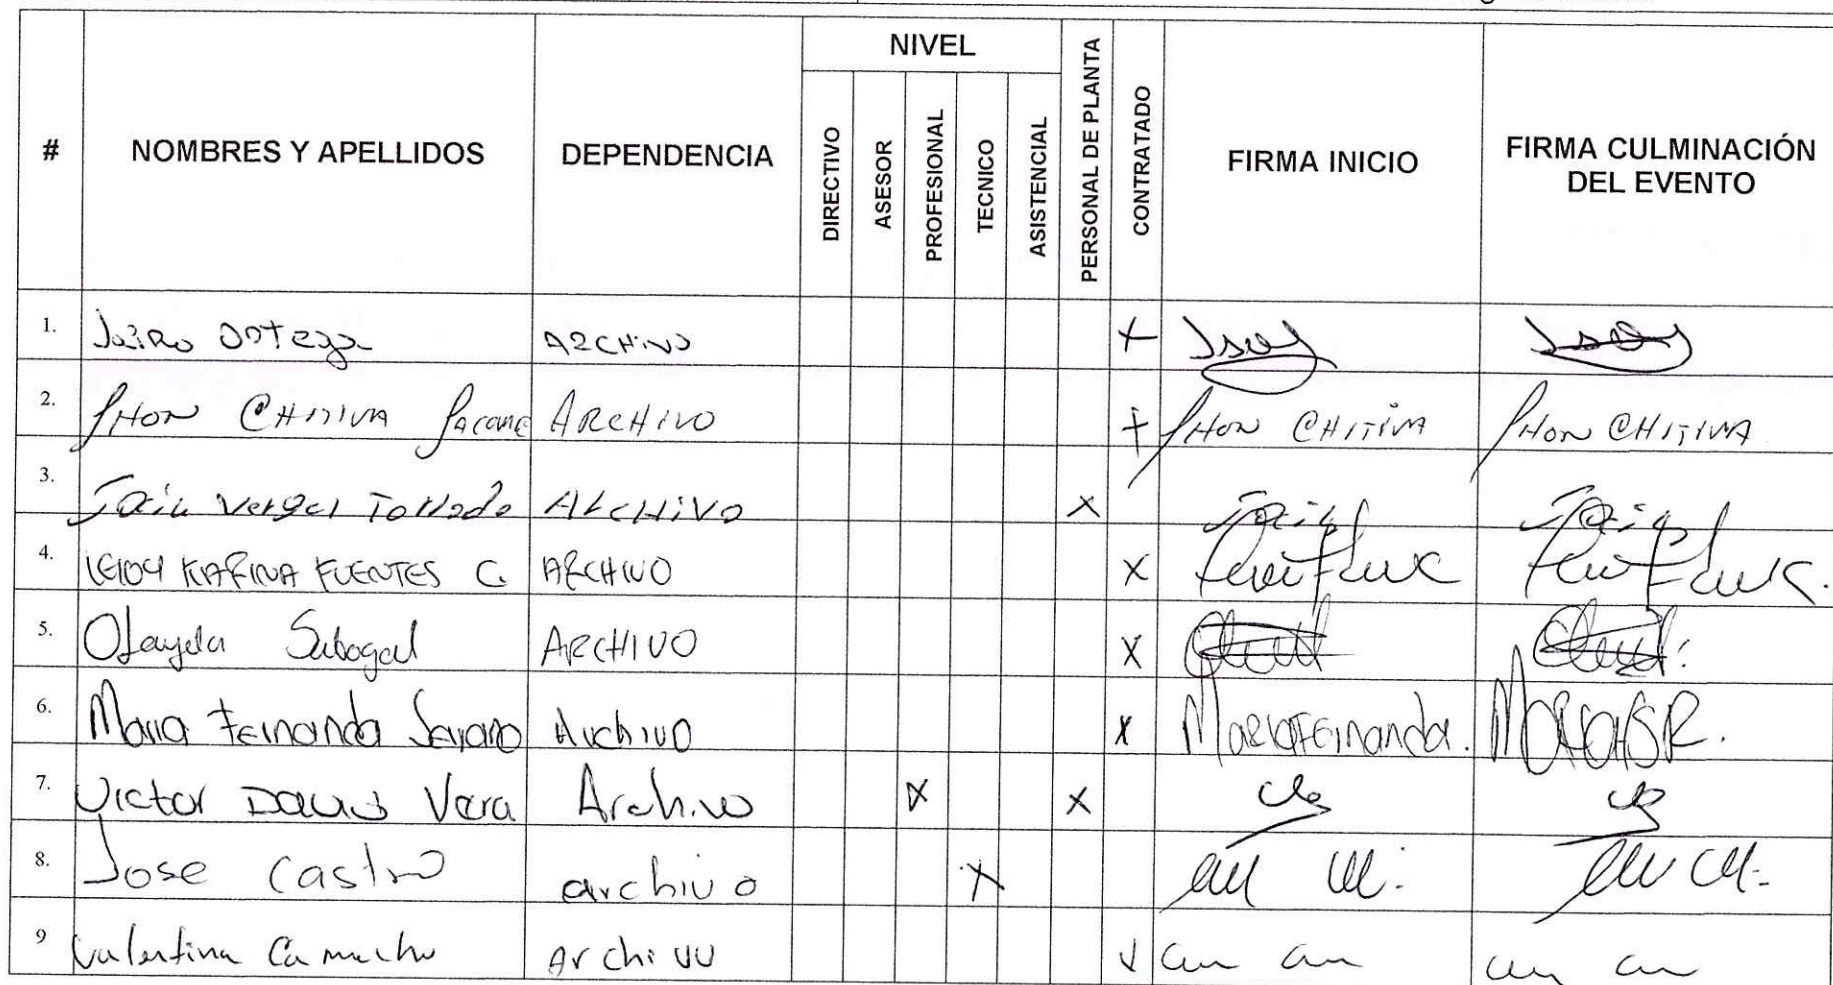 # NOMBRES Y APELLIDOS DEPENDENCIA NIVEL DIRECTIVO ASESOR PROFESIONAL TECNICO ASISTENCIAL PERSONAL DE PLANTA CONTRATADO FIRMA INICIO FIRMA CULMINACIÓN DEL EVENTO
1. Jairo Ortega ARCHIVO X
2. JHON CHITIVA ARCHIVO X JHON CHITIVA JHON CHITIVA
3. Vergel ARCHIVO X
4. LEIDY KARINA FUENTES C. ARCHIVO X
5. Sabogal ARCHIVO X
6. Maria Fernanda Serrano Archivo X Maria Fernanda.
7. Victor David Vera Archivo X X
8. Jose Castro archivo X
9 Valentina Camacho Archivo